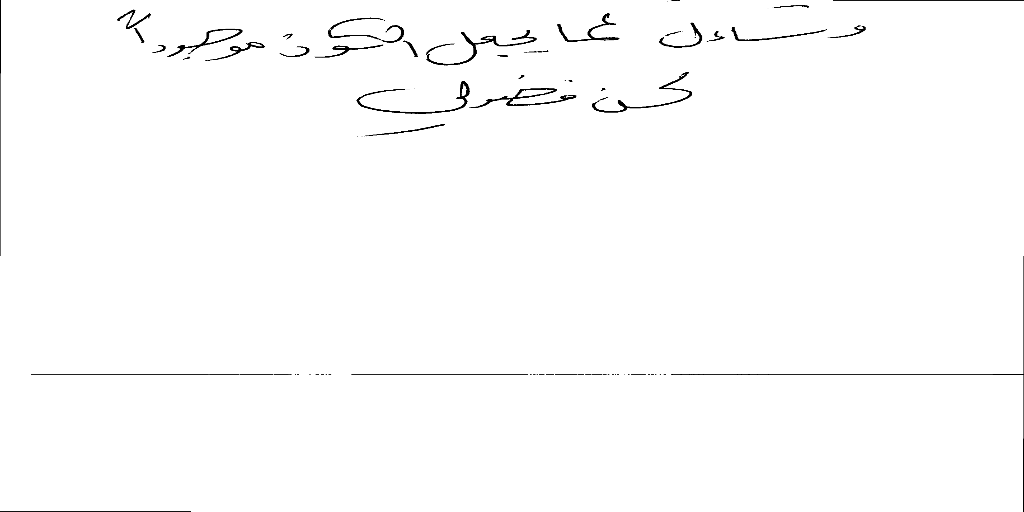 وتساءل عما يجعل الكون موجودا
كن فضولي